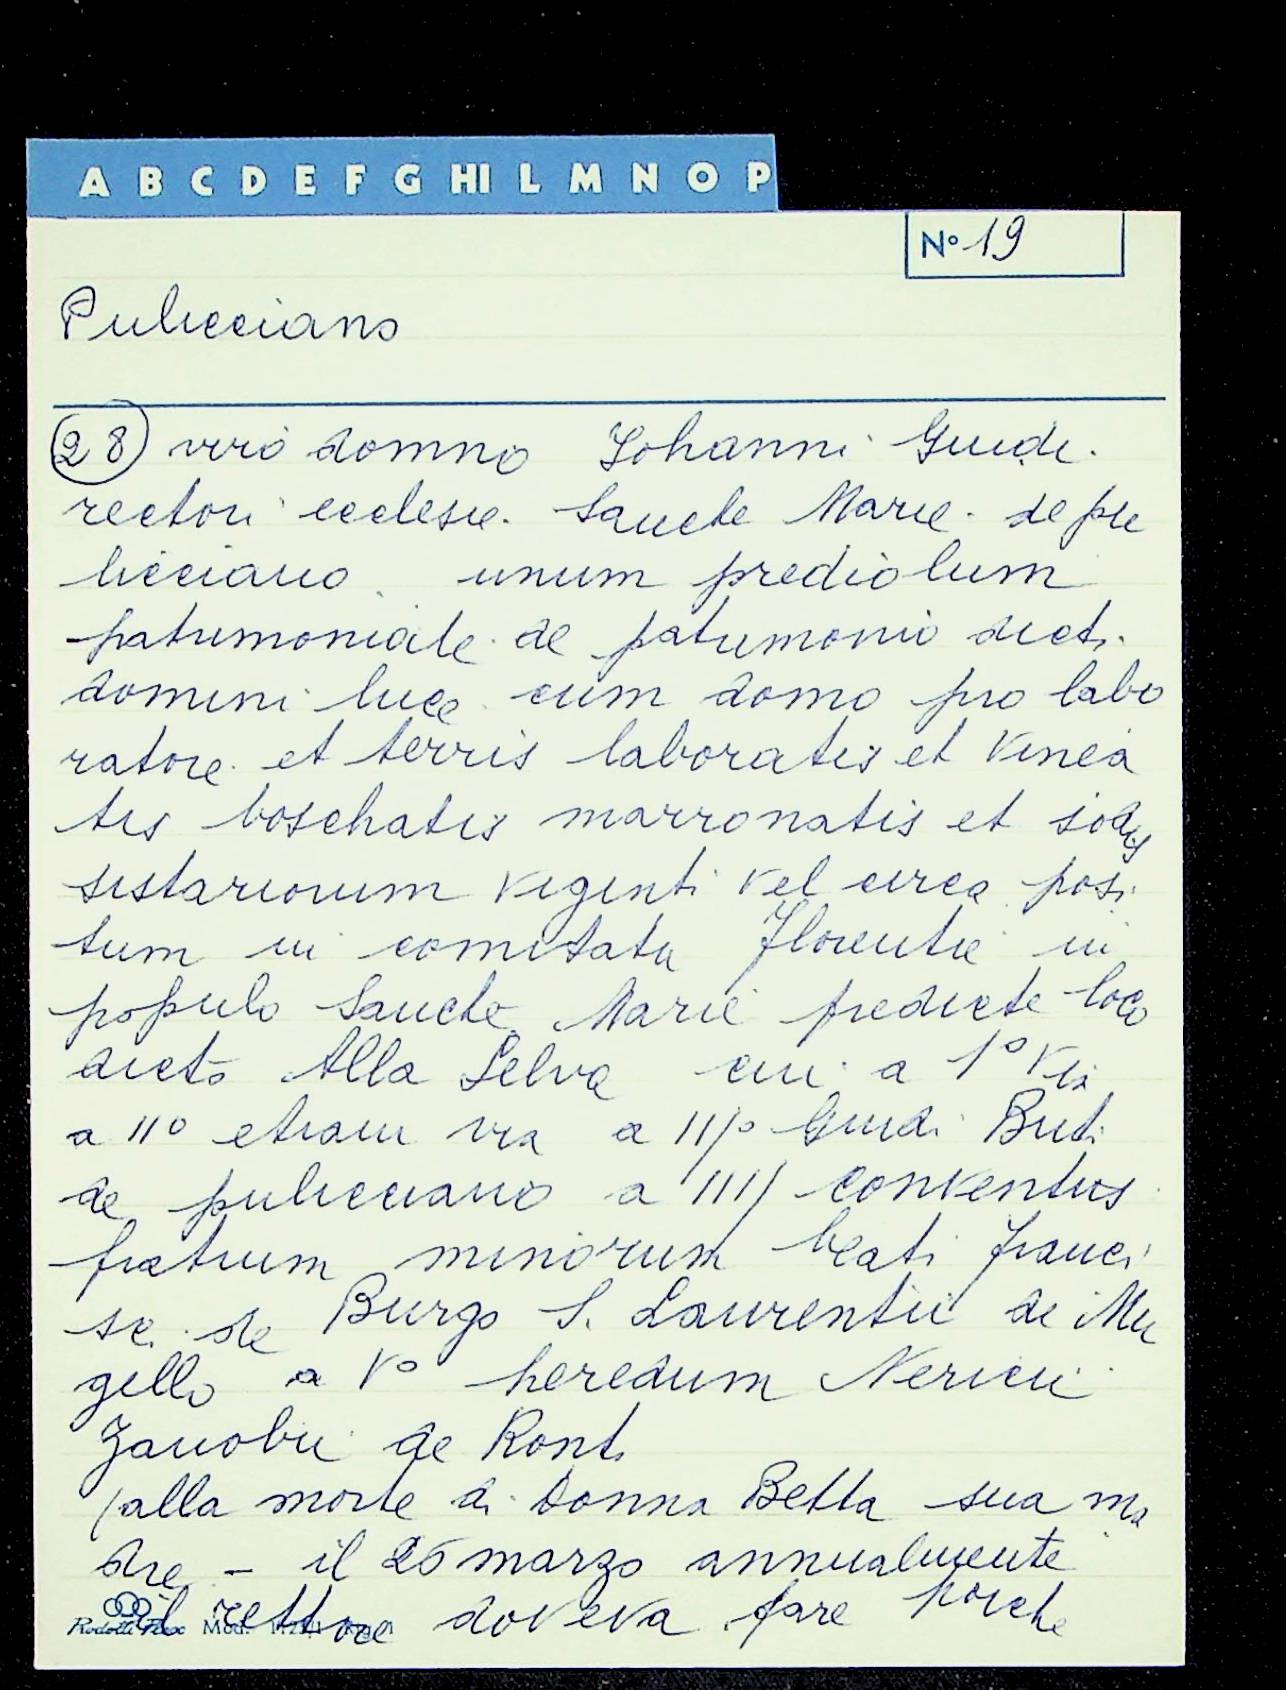 A B C D E F G HI L M N O P
N° 19
Pulicciano
28 viro domno Johanni Guidi
rectori ecclesie Sancte Marie de pu
licciano unum prediolum
patrimoniale de patrimonio dicti
domini luce cum domo pro labo
ratore et terris laboratis et vinea
tis boschatis marronatis et sodis
sistariorum viginti vel circa posi
tum in comitatu Florentie in
populo Sancte Marie predicte loco
dicto Alla Selva cui a 1° via
a II° etiam via a III° Guidi Buti
de pulicciano a IIII conventus
fratrum minorum beati Franci
sci de Burgo S. Laurentii de Mu
gello a V° heredum Nericii
Zanobii de Ronti
(alla morte di Donna Betta sua ma
dre - il 25 marzo annualmente
il rettore doveva fare
Mod.